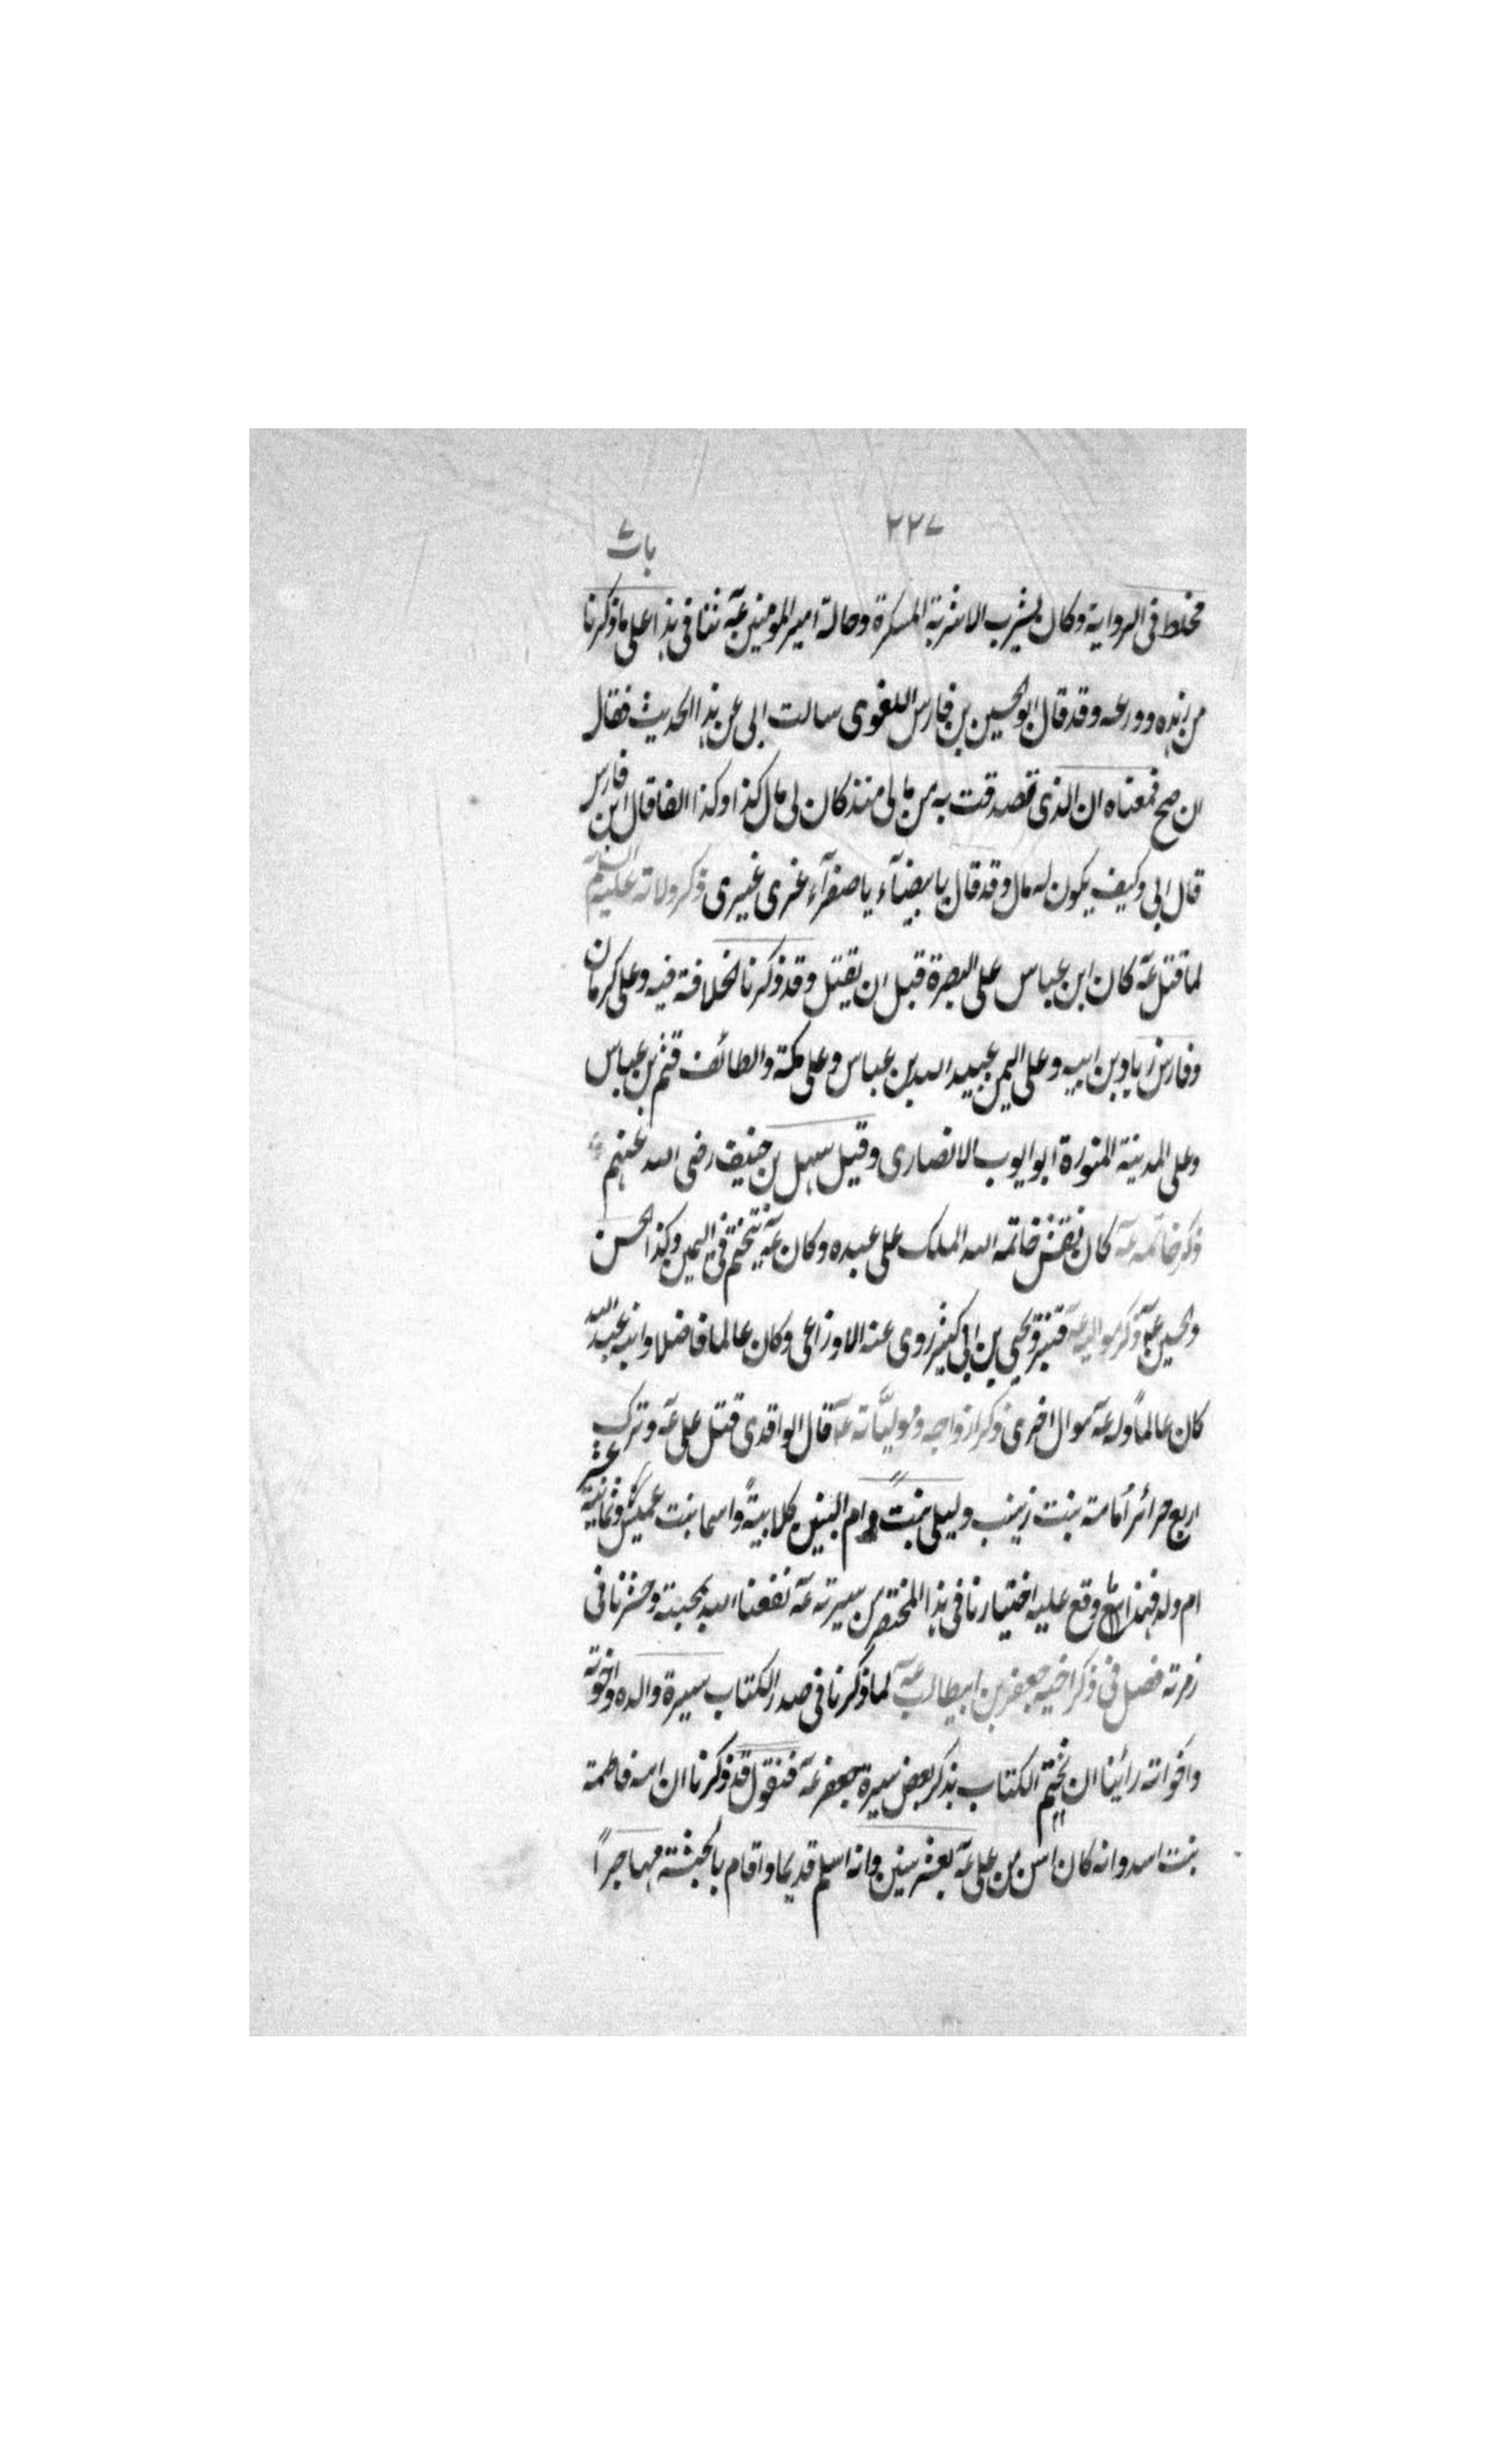 ٢٢٧
باب
مخلط فی الروایة وکان یشرب الاشربة المسکرة وحالة امیر المومنین عہ تنافی ہذا علی ما ذکرنا
من زہدہ وورعہ وقد قال ابو الحسین بن فارس اللغوی سالت ابی عن ہذا الحدیث فقال
ان صح فمعناہ ان الذی تصدقت بہ من مالی منذ کان لی مال کذا وکذا الفا قال ابن فارس
قال ابی وکیف یکون لہ مال وقد قال یا بیضآء یا صفرآء غری غیری ذکر ولاتہ علیہم السلام
لما قتل عہ کان ابن عباس علی البصرة قبل ان یقتل وقد ذکرنا الخلافة فیہ وعلی کرمان
وفارس زیاد بن ابیہ وعلی الیمن عبید اللہ بن عباس وعلی مکة والطائف قثم بن عباس
وعلی المدینة المنورة ابو ایوب الانصاری وقیل سہل بن حنیف رضی اللہ عنہم
ذکر خاتمہ عہ کان نقش خاتمہ اللہ الملک علی عبدہ وکان عہ یتختم فی الیمین وکذا الحسن
والحسین عہ ذکر موالیہ عہ قنبر ویحیی بن ابی کثیر روی عنہ الاوزاعی وکان عالما فاضلا وابنہ عبد اللہ
کان عالماً ولہ عہ موال اخری ذکر ازواجہ ومولیّاتہ عہ قال الواقدی قتل علی عہ وترک
اربع حرائر أمامة بنت زینب ولیلی بنت وام البنین کلابیةً واسما بنت عمیس وثمانیة عشر
ام ولد فہذا ما وقع علیہ اختیارنا فی ہذا المختصر من سیرتہ عہ نفعنا اللہ بمحبتہ وحشرنا فی
زمرتہ فصل فی ذکر اخیہ جعفر بن ابیطالب عہ لما ذکرنا فی صدر الکتاب سیرة والدہ واخوتہ
واخواتہ رأینا ان نختم الکتاب بذکر بعض سیرة جعفر عہ فنقول قد ذکرنا ان امہ فاطمة
بنت اسد وانہ کان اسن من علی عہ بعشر سنین وانہ اسلم قدیما واقام بالحبشة مہاجراً